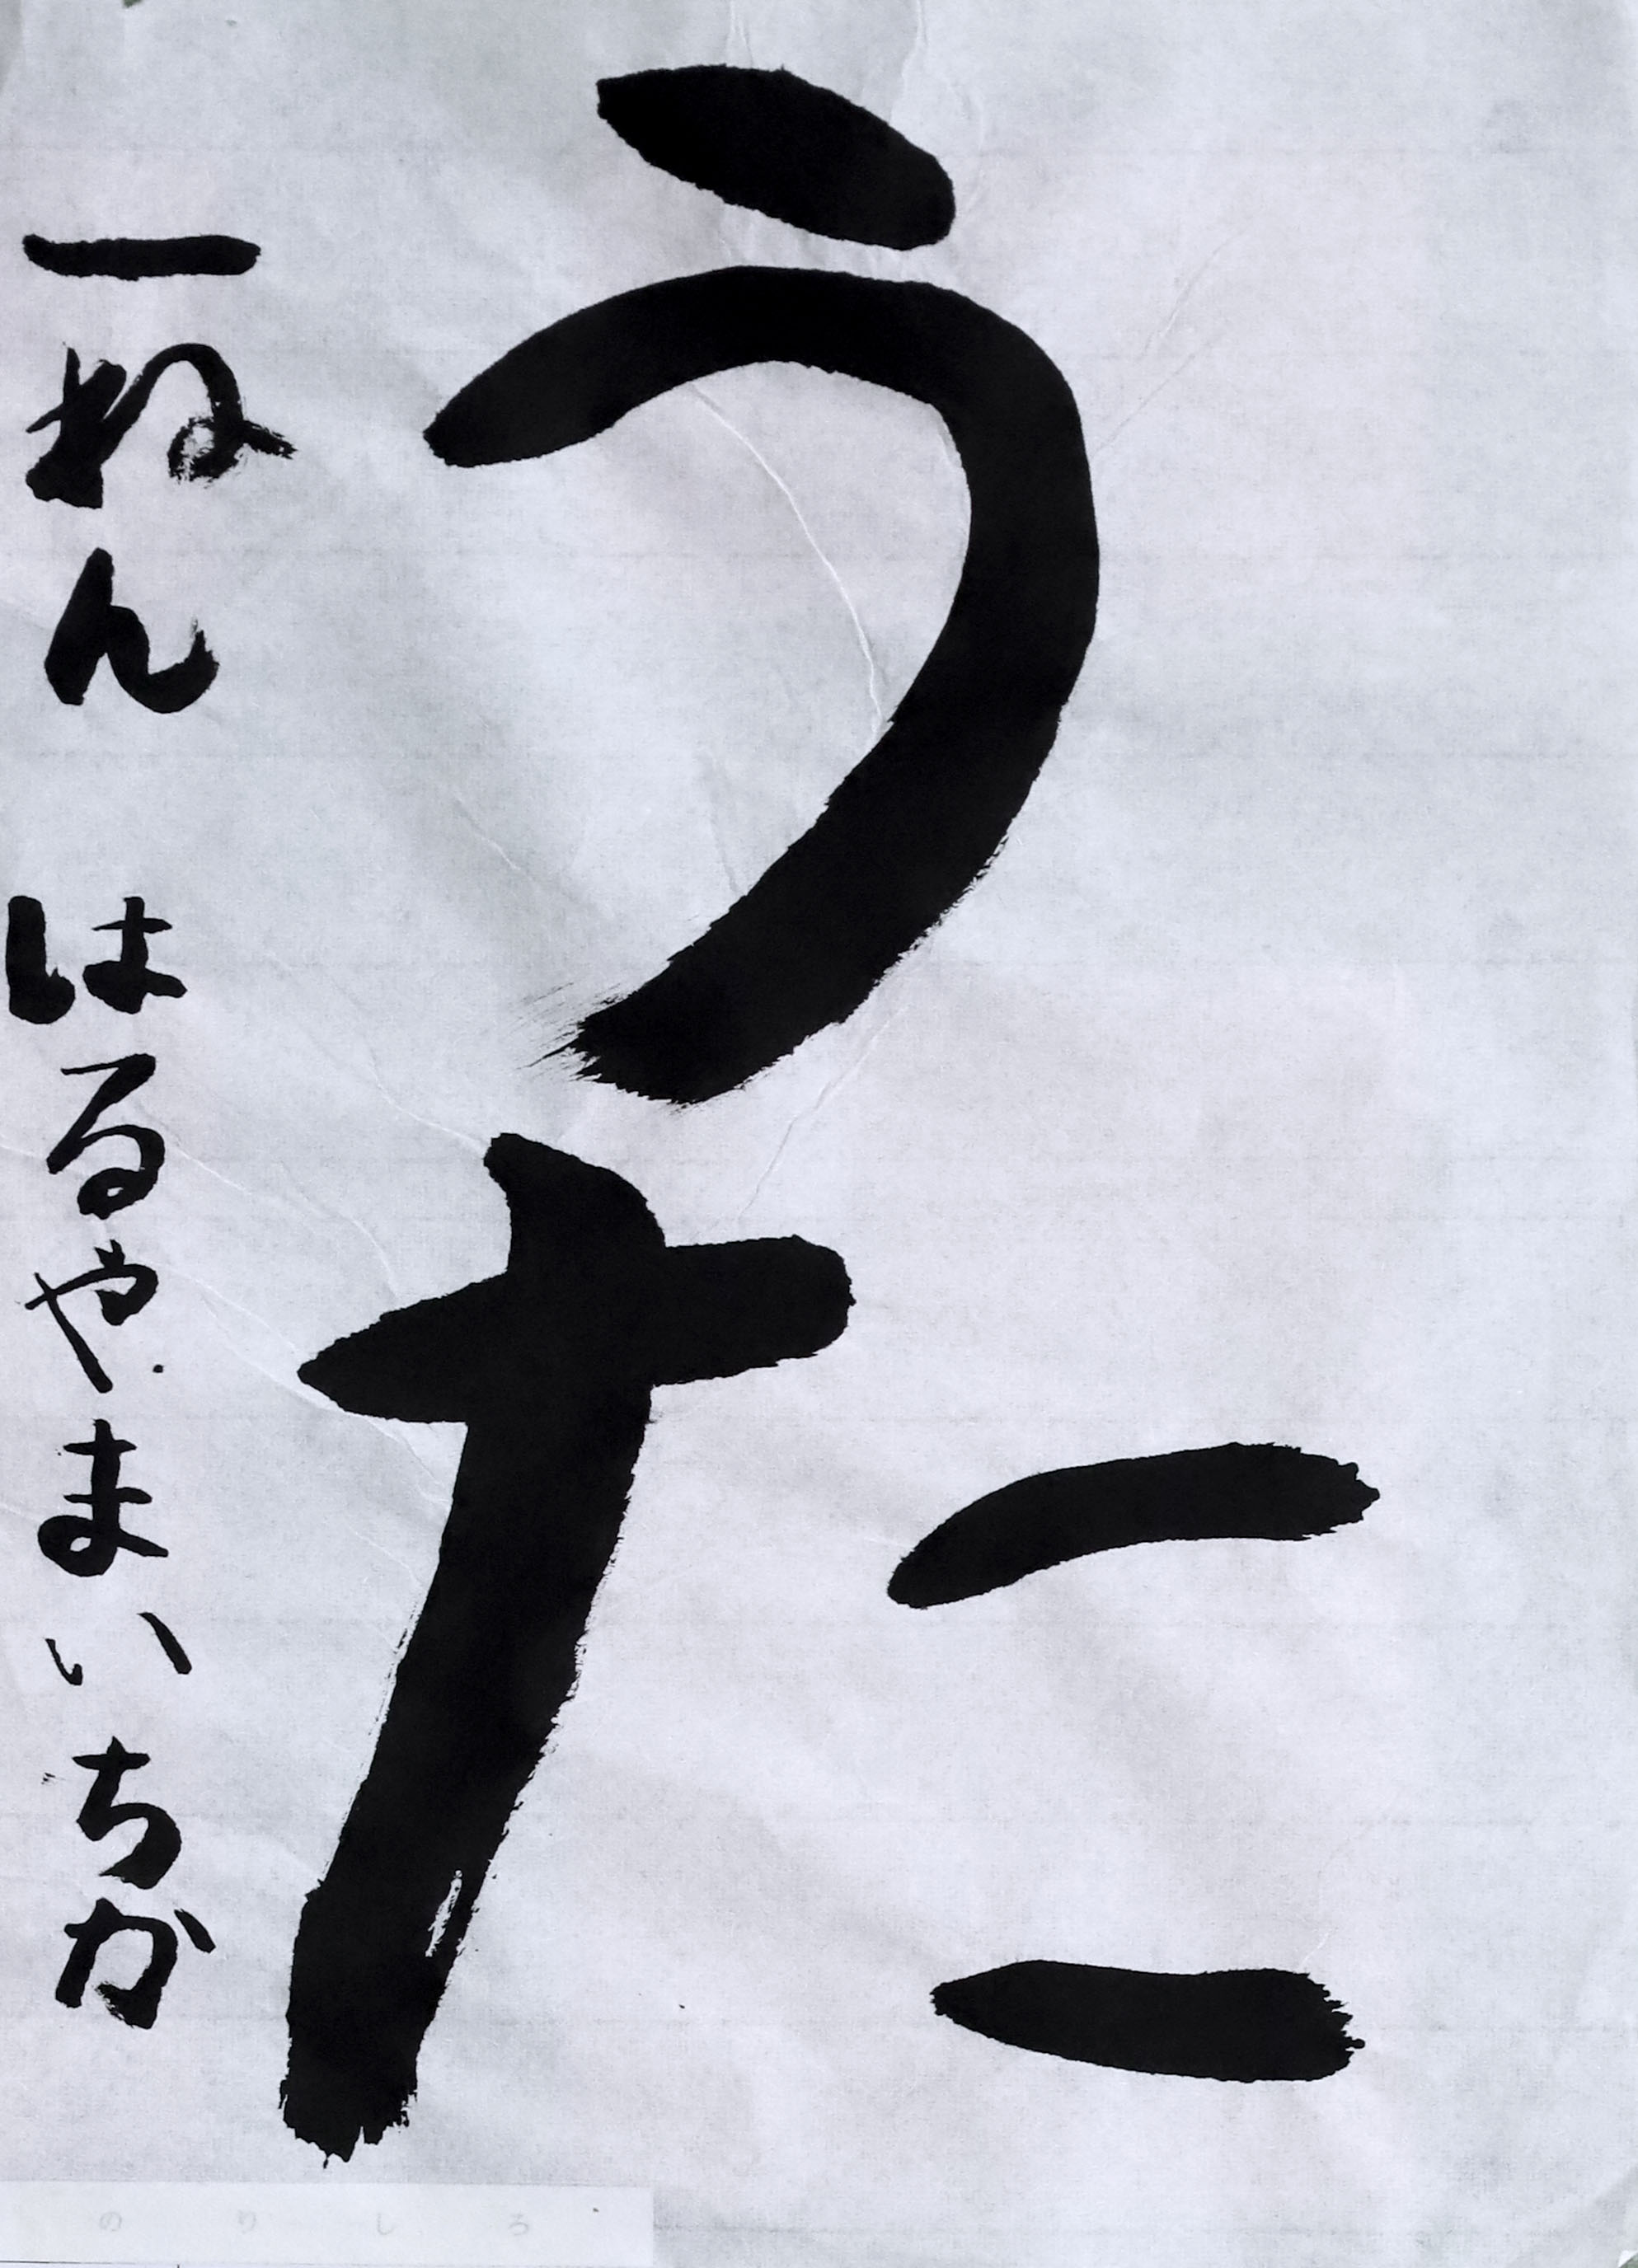 うた
一ねん はるやまいちか
のりしろ